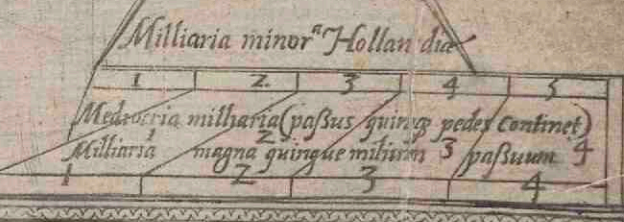 Milliaria minorª Hollandiæ
1 2 3 4 5
Mediocria milliaria (paßus quinqꝫ pedes continet)
1 2 3 4
Milliaria magna quinque milium paßuum
1 2 3 4